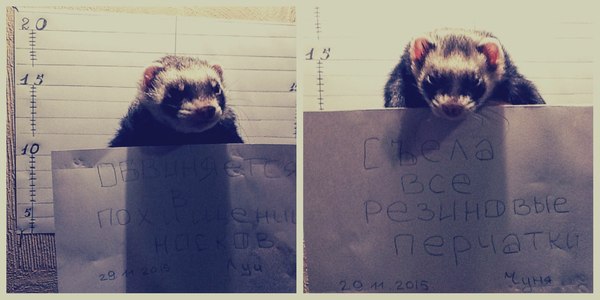 20
15
10
5
Обвиняется
в
похищении
носков
29.11.2015 Луи
15
Съела
все
резиновые
перчатки
29.11.2015 Чуня